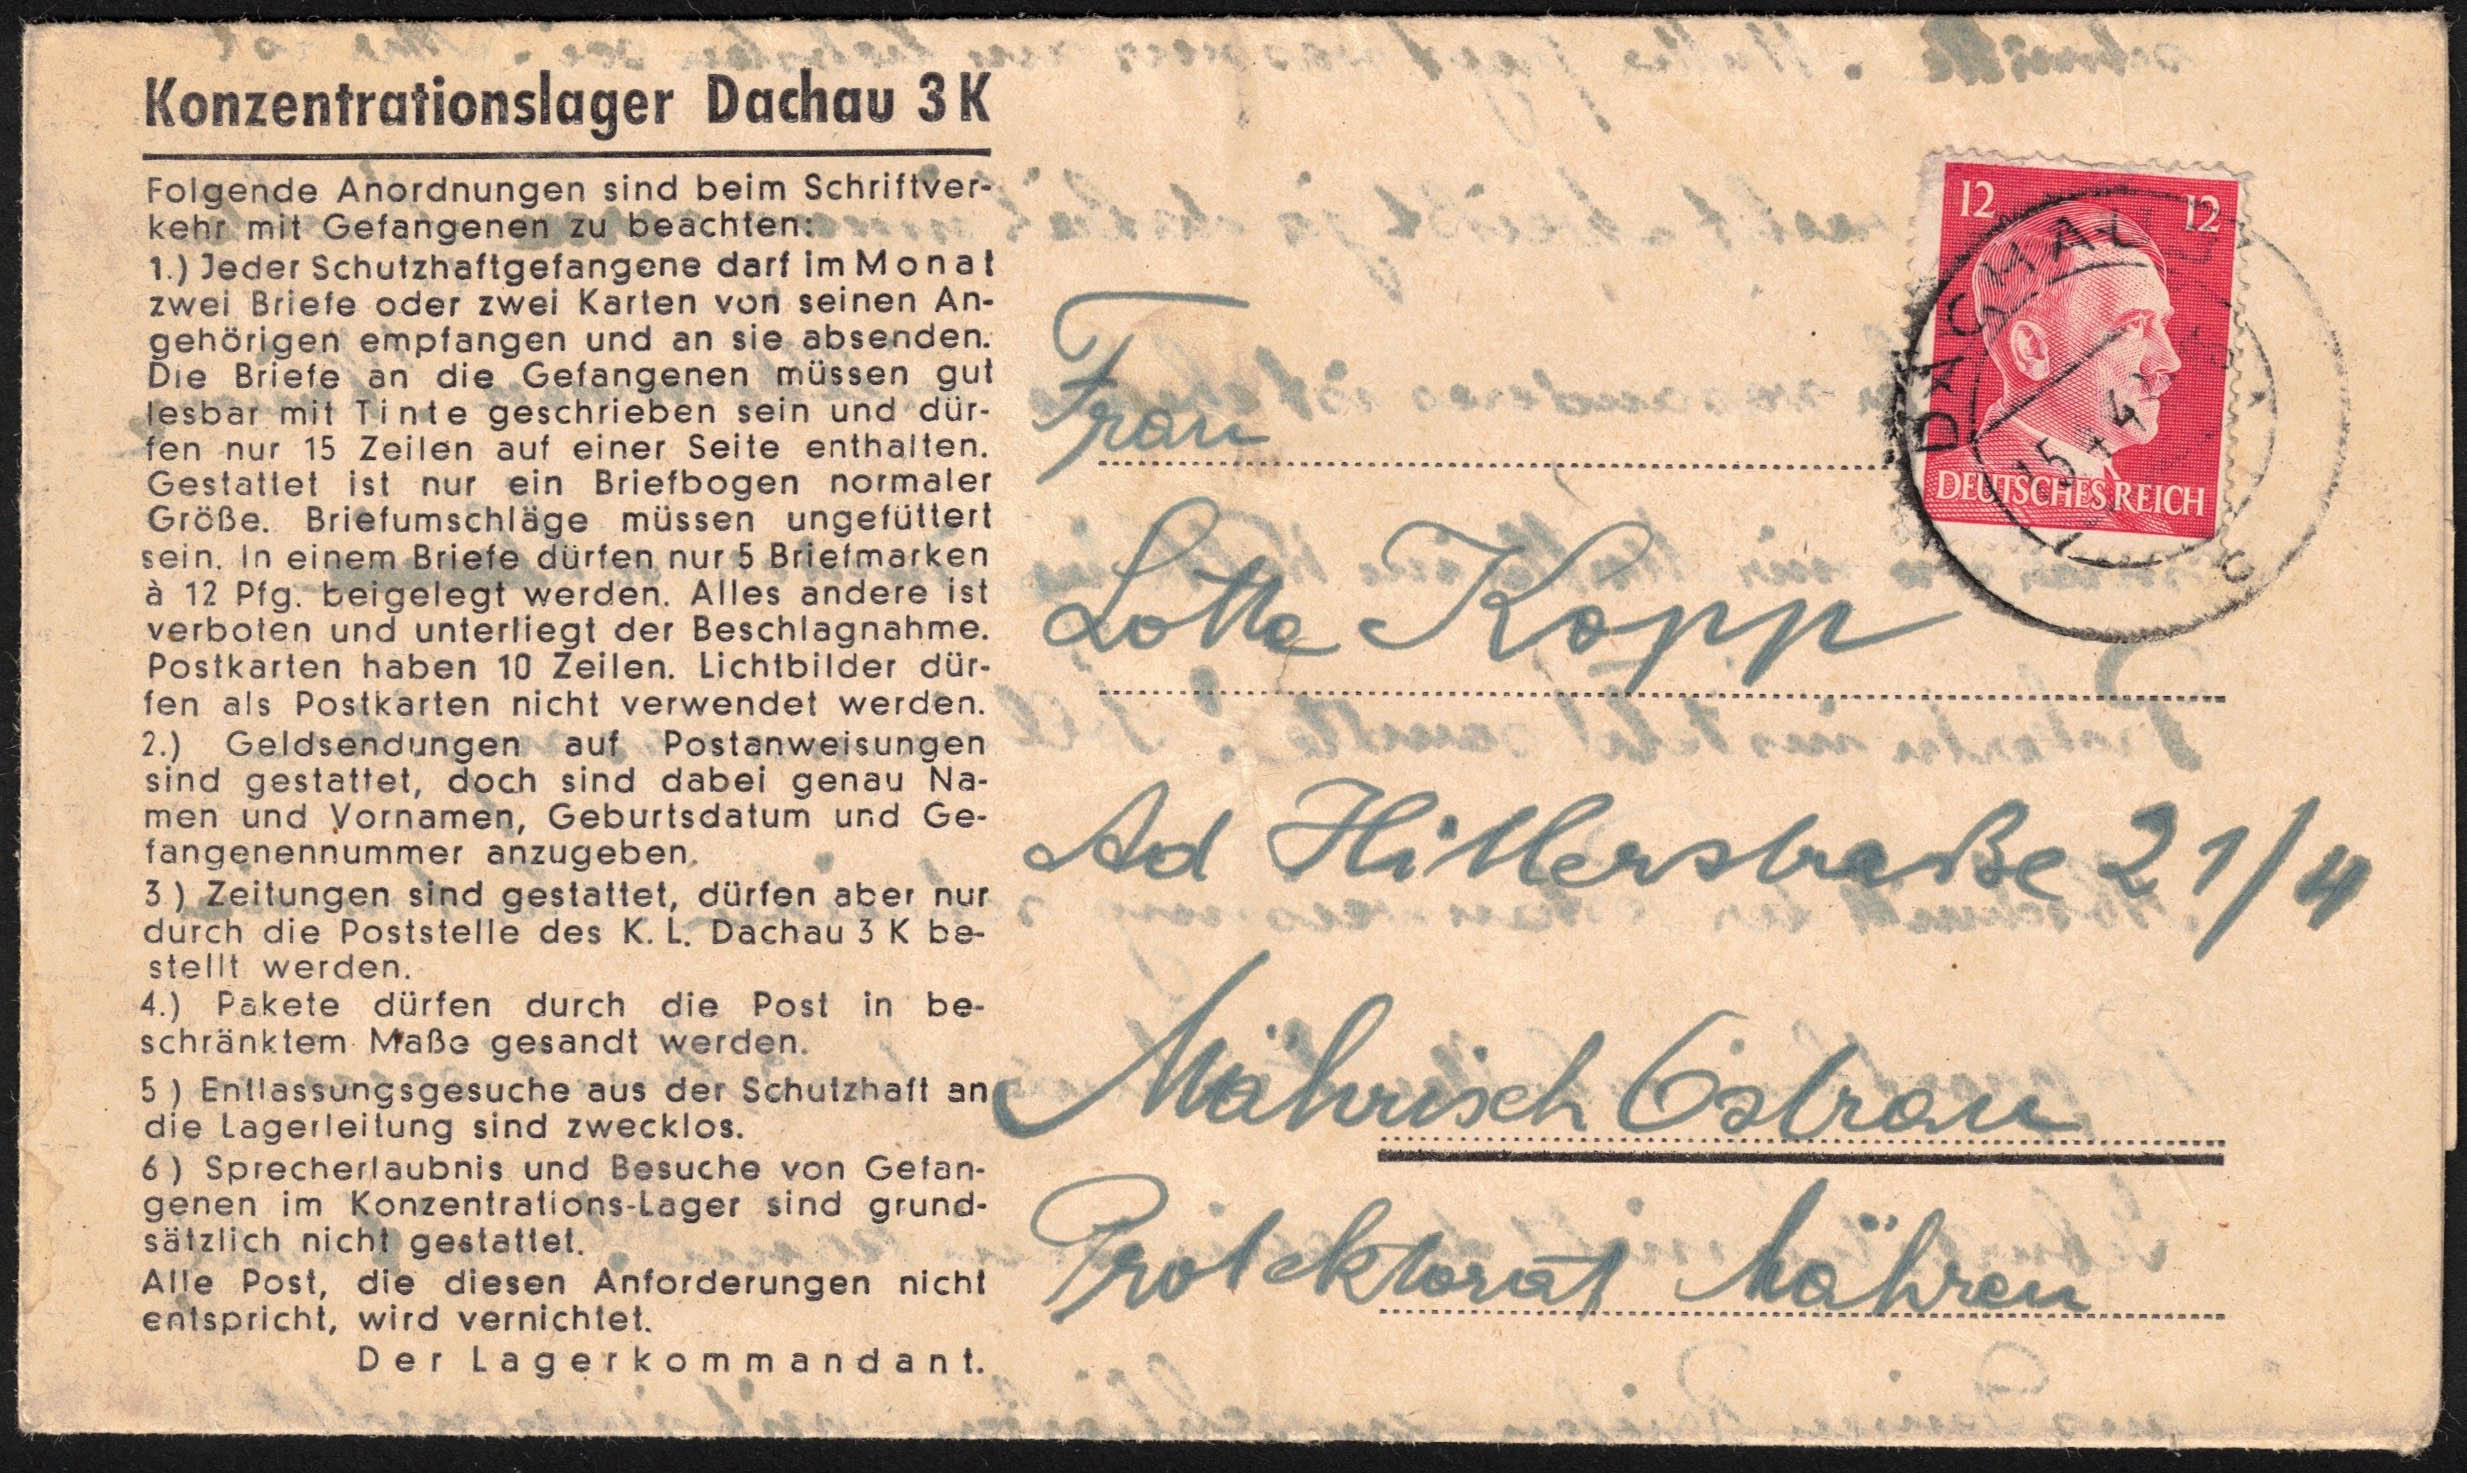 Konzentrationslager Dachau 3 K
Folgende Anordnungen sind beim Schriftver-
kehr mit Gefangenen zu beachten:
1.) Jeder Schutzhaftgefangene darf im Monat
zwei Briefe oder zwei Karten von seinen An-
gehörigen empfangen und an sie absenden.
Die Briefe an die Gefangenen müssen gut
lesbar mit Tinte geschrieben sein und dür-
fen nur 15 Zeilen auf einer Seite enthalten.
Gestattet ist nur ein Briefbogen normaler
Größe. Briefumschläge müssen ungefüttert
sein. In einem Briefe dürfen nur 5 Briefmarken
à 12 Pfg. beigelegt werden. Alles andere ist
verboten und unterliegt der Beschlagnahme.
Postkarten haben 10 Zeilen. Lichtbilder dür-
fen als Postkarten nicht verwendet werden.
2.) Geldsendungen auf Postanweisungen
sind gestattet, doch sind dabei genau Na-
men und Vornamen, Geburtsdatum und Ge-
fangenennummer anzugeben.
3) Zeitungen sind gestattet, dürfen aber nur
durch die Poststelle des K. L. Dachau 3 K be-
stellt werden.
4.) Pakete dürfen durch die Post in be-
schränktem Maße gesandt werden.
5) Entlassungsgesuche aus der Schutzhaft an
die Lagerleitung sind zwecklos.
6) Sprecherlaubnis und Besuche von Gefan-
genen im Konzentrations-Lager sind grund-
sätzlich nicht gestattet.
Alle Post, die diesen Anforderungen nicht
entspricht, wird vernichtet.
Der Lagerkommandant.
12 12
DEUTSCHES REICH
DACHAU
Frau
Lotte Kopp
Ad Hitlerstraße 21/4
Mährisch Ostrau
Protektorat Mähren